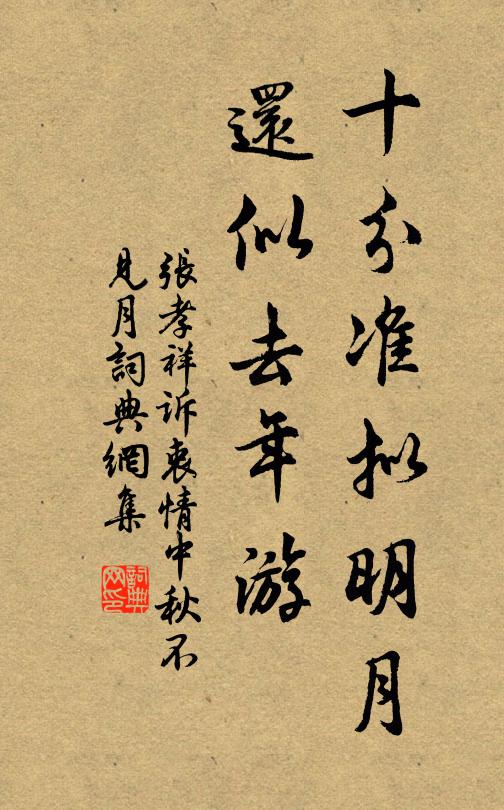 十分准拟明月
還似去年游
張孝祥訴衷情中秋不
見月詞典網集
詞典
网印